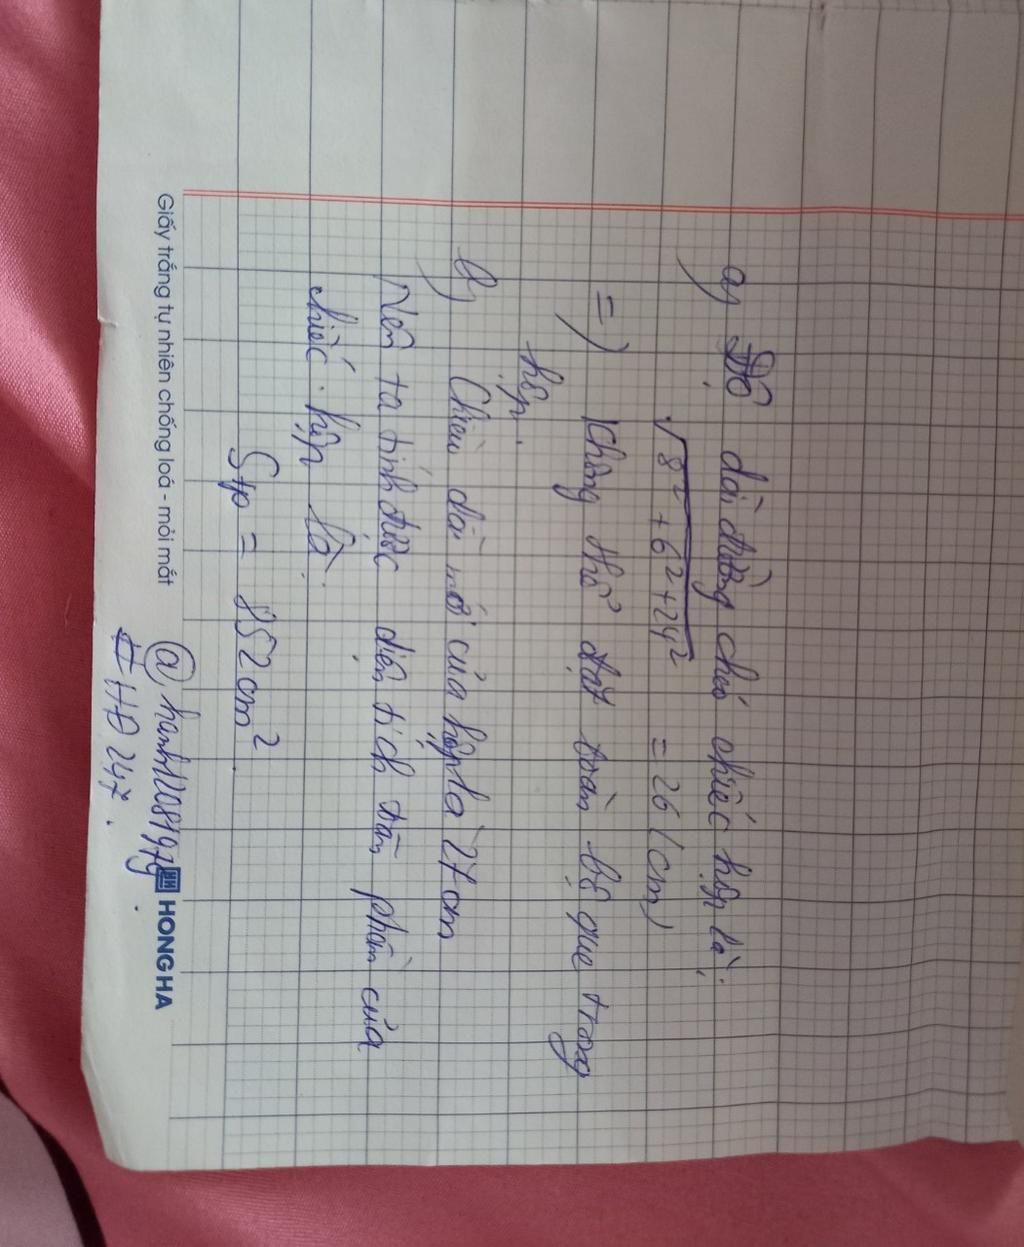 a) Độ dài đường chéo chiếc hộp là:
√8² + 6² + 24² = 26 (cm)
=) Không thể đặt toàn bộ que trong
hộp.
b) Chiều dài mới của hộp là 27 cm
Nên ta tính được diện tích toàn phần của
chiếc hộp là:
Stp = 852 cm²
@
#HĐ247.
Giấy trắng tự nhiên chống loá - mỏi mắt
HH HONG HA